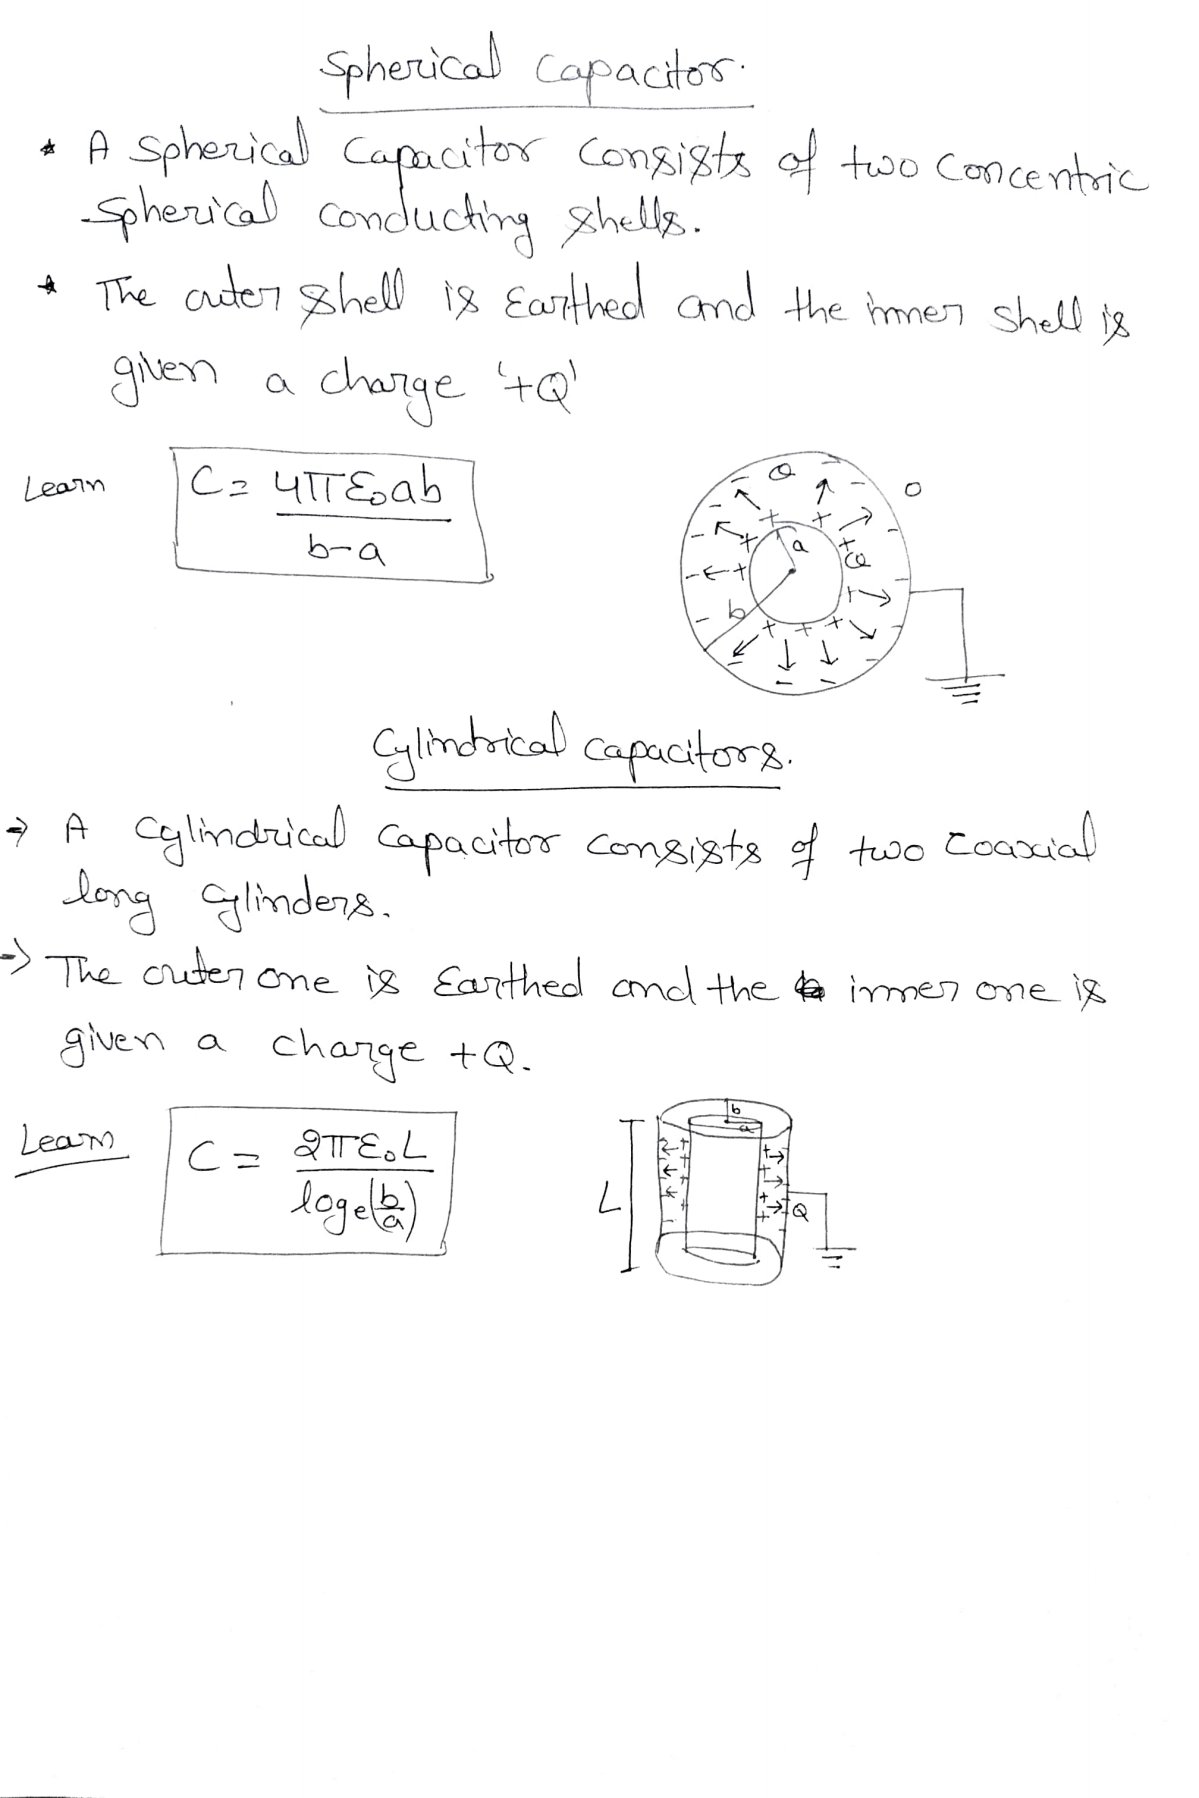 Spherical Capacitor.
* A Spherical Capacitor Consists of two Concentric
Spherical conducting shells.
* The outer shell is Earthed and the inner shell is
given a charge '+Q'
Learn
C = 4πε₀ab
b-a
Q
O
a
+Q
b
Cylindrical Capacitors.
⇒ A Cylindrical Capacitor Consists of two Coaxial
long Cylinders.
⇒ The outer one is Earthed and the inner one is
given a charge +Q.
Learn
C = 2πε₀L
loge(b/a)
b
a
L
Q